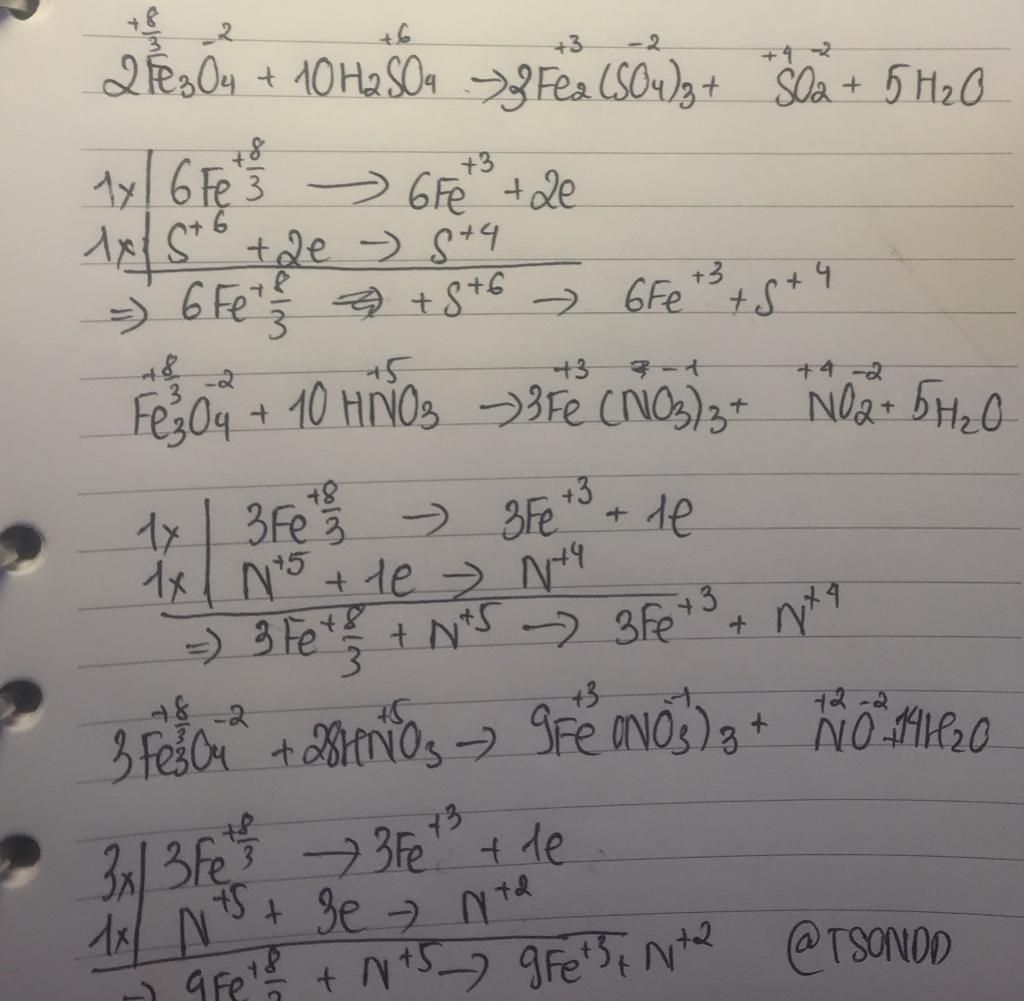 +8/3 -2 +6 +3 -2 +4 -2
2Fe₃O₄ + 10H₂SO₄ → 3Fe₂(SO₄)₃ + SO₂ + 5H₂O
1x | 6Fe^+8/3 → 6Fe^+3 + 2e
1x | S^+6 + 2e → S^+4
⇒ 6Fe^+8/3 + S^+6 → 6Fe^+3 + S^+4
+8/3 -2 +5 +3 -1 +4 -2
Fe₃O₄ + 10HNO₃ → 3Fe(NO₃)₃ + NO₂ + 5H₂O
1x | 3Fe^+8/3 → 3Fe^+3 + 1e
1x | N^+5 + 1e → N^+4
⇒ 3Fe^+8/3 + N^+5 → 3Fe^+3 + N^+4
+8/3 -2 +5 +3 -1 +2 -2
3Fe₃O₄ + 28HNO₃ → 9Fe(NO₃)₃ + NO + 14H₂O
3x | 3Fe^+8/3 → 3Fe^+3 + 1e
1x | N^+5 + 3e → N^+2
⇒ 9Fe^+8/3 + N^+5 → 9Fe^+3 + N^+2 @TSONDD